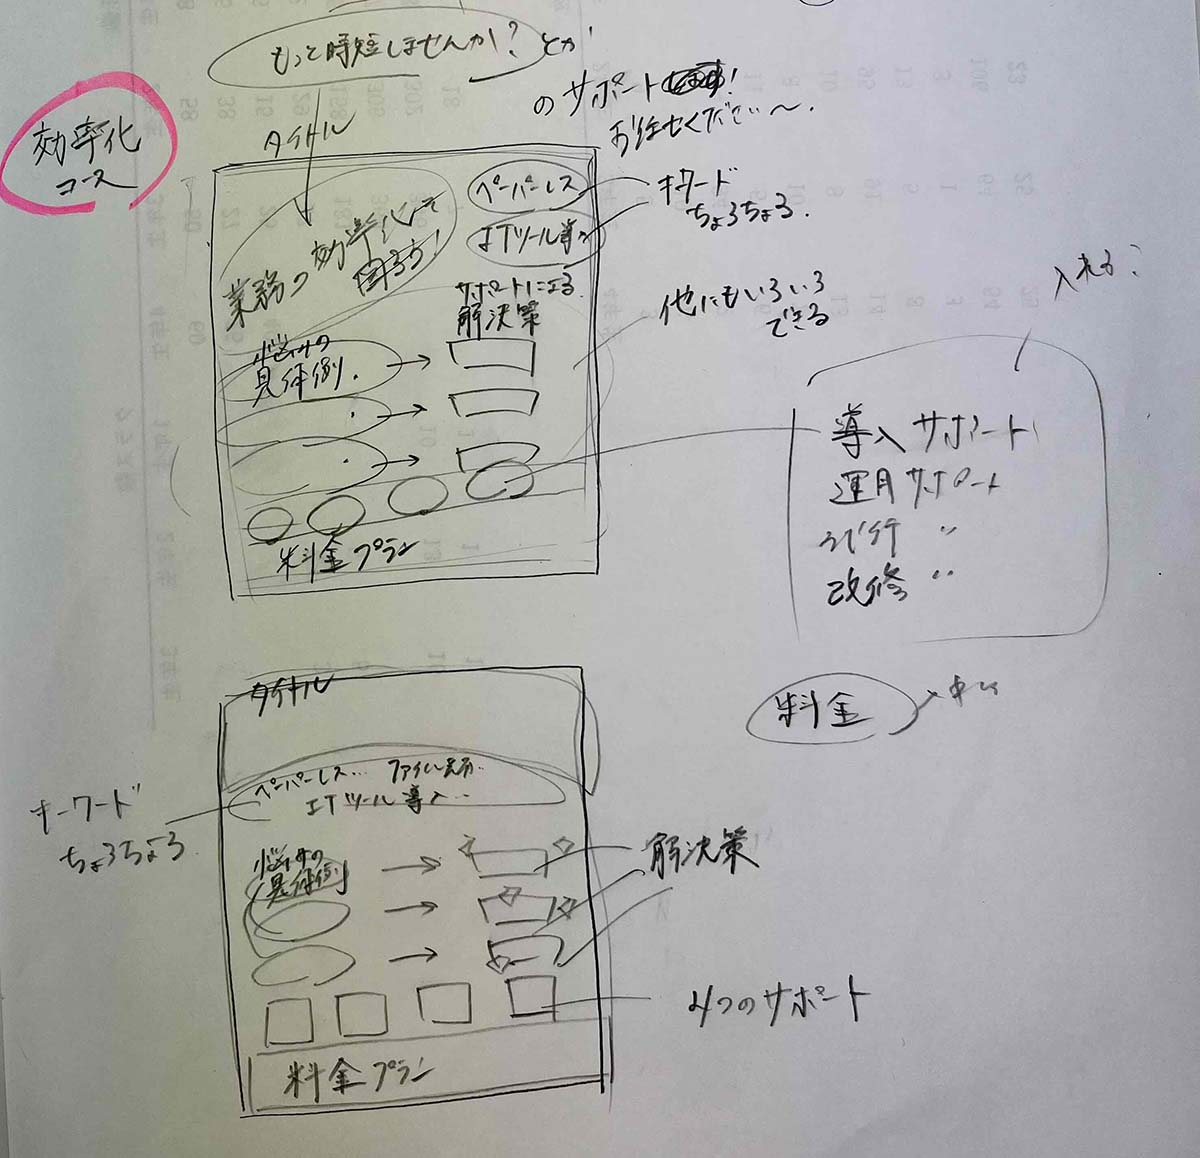 もっと時短しませんか? とか
効率化
コース
タイトル
のサポート
お任せください〜.
ペーパーレス
ITツール導入
キーワード
ちょろちょろ.
業務の効率化で
困る方!
サポートによる
解決策
悩みの
具体例.
他にもいろいろ
できる
入れる?
導入サポート
運用サポート
代行 〃
改修 〃
料金プラン
料金
タイトル
ペーパーレス…
ITツール導入…
キーワード
ちょろちょろ.
悩みの
具体例
解決策
4つのサポート
料金プラン